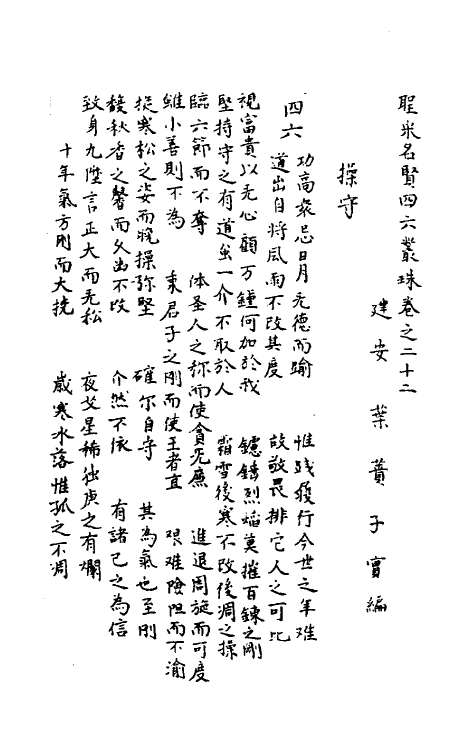 聖宋名賢四六叢珠卷之二十二
建安葉蕡子實編
操守
四六 功高衆忌日月无德而踰 惟踐履行今世之年难
道出自将風雨不改其度 故敬畏排它人之可比
視富貴以无心顧万鍾何加於我 鑪鑄烈焰莫摧百鍊之剛
堅持守之有道虽一介不取於人 霜雪後寒不改後凋之操
臨六節而不奪 体圣人之称而使貪无廉 進退周旋而可度
雖小善則不為 秉君子之剛而使王者直 艰难險阻而不渝
挺寒松之姿而晚操弥堅 確尔自守 其為氣也至刚
馥秋香之馨而久幽不改 介然不依 有諸己之為信
致身九陛言正大而无私 夜艾星稀独庚之有爛
十年氣方刚而大挠 歲寒水落惟孤之不凋